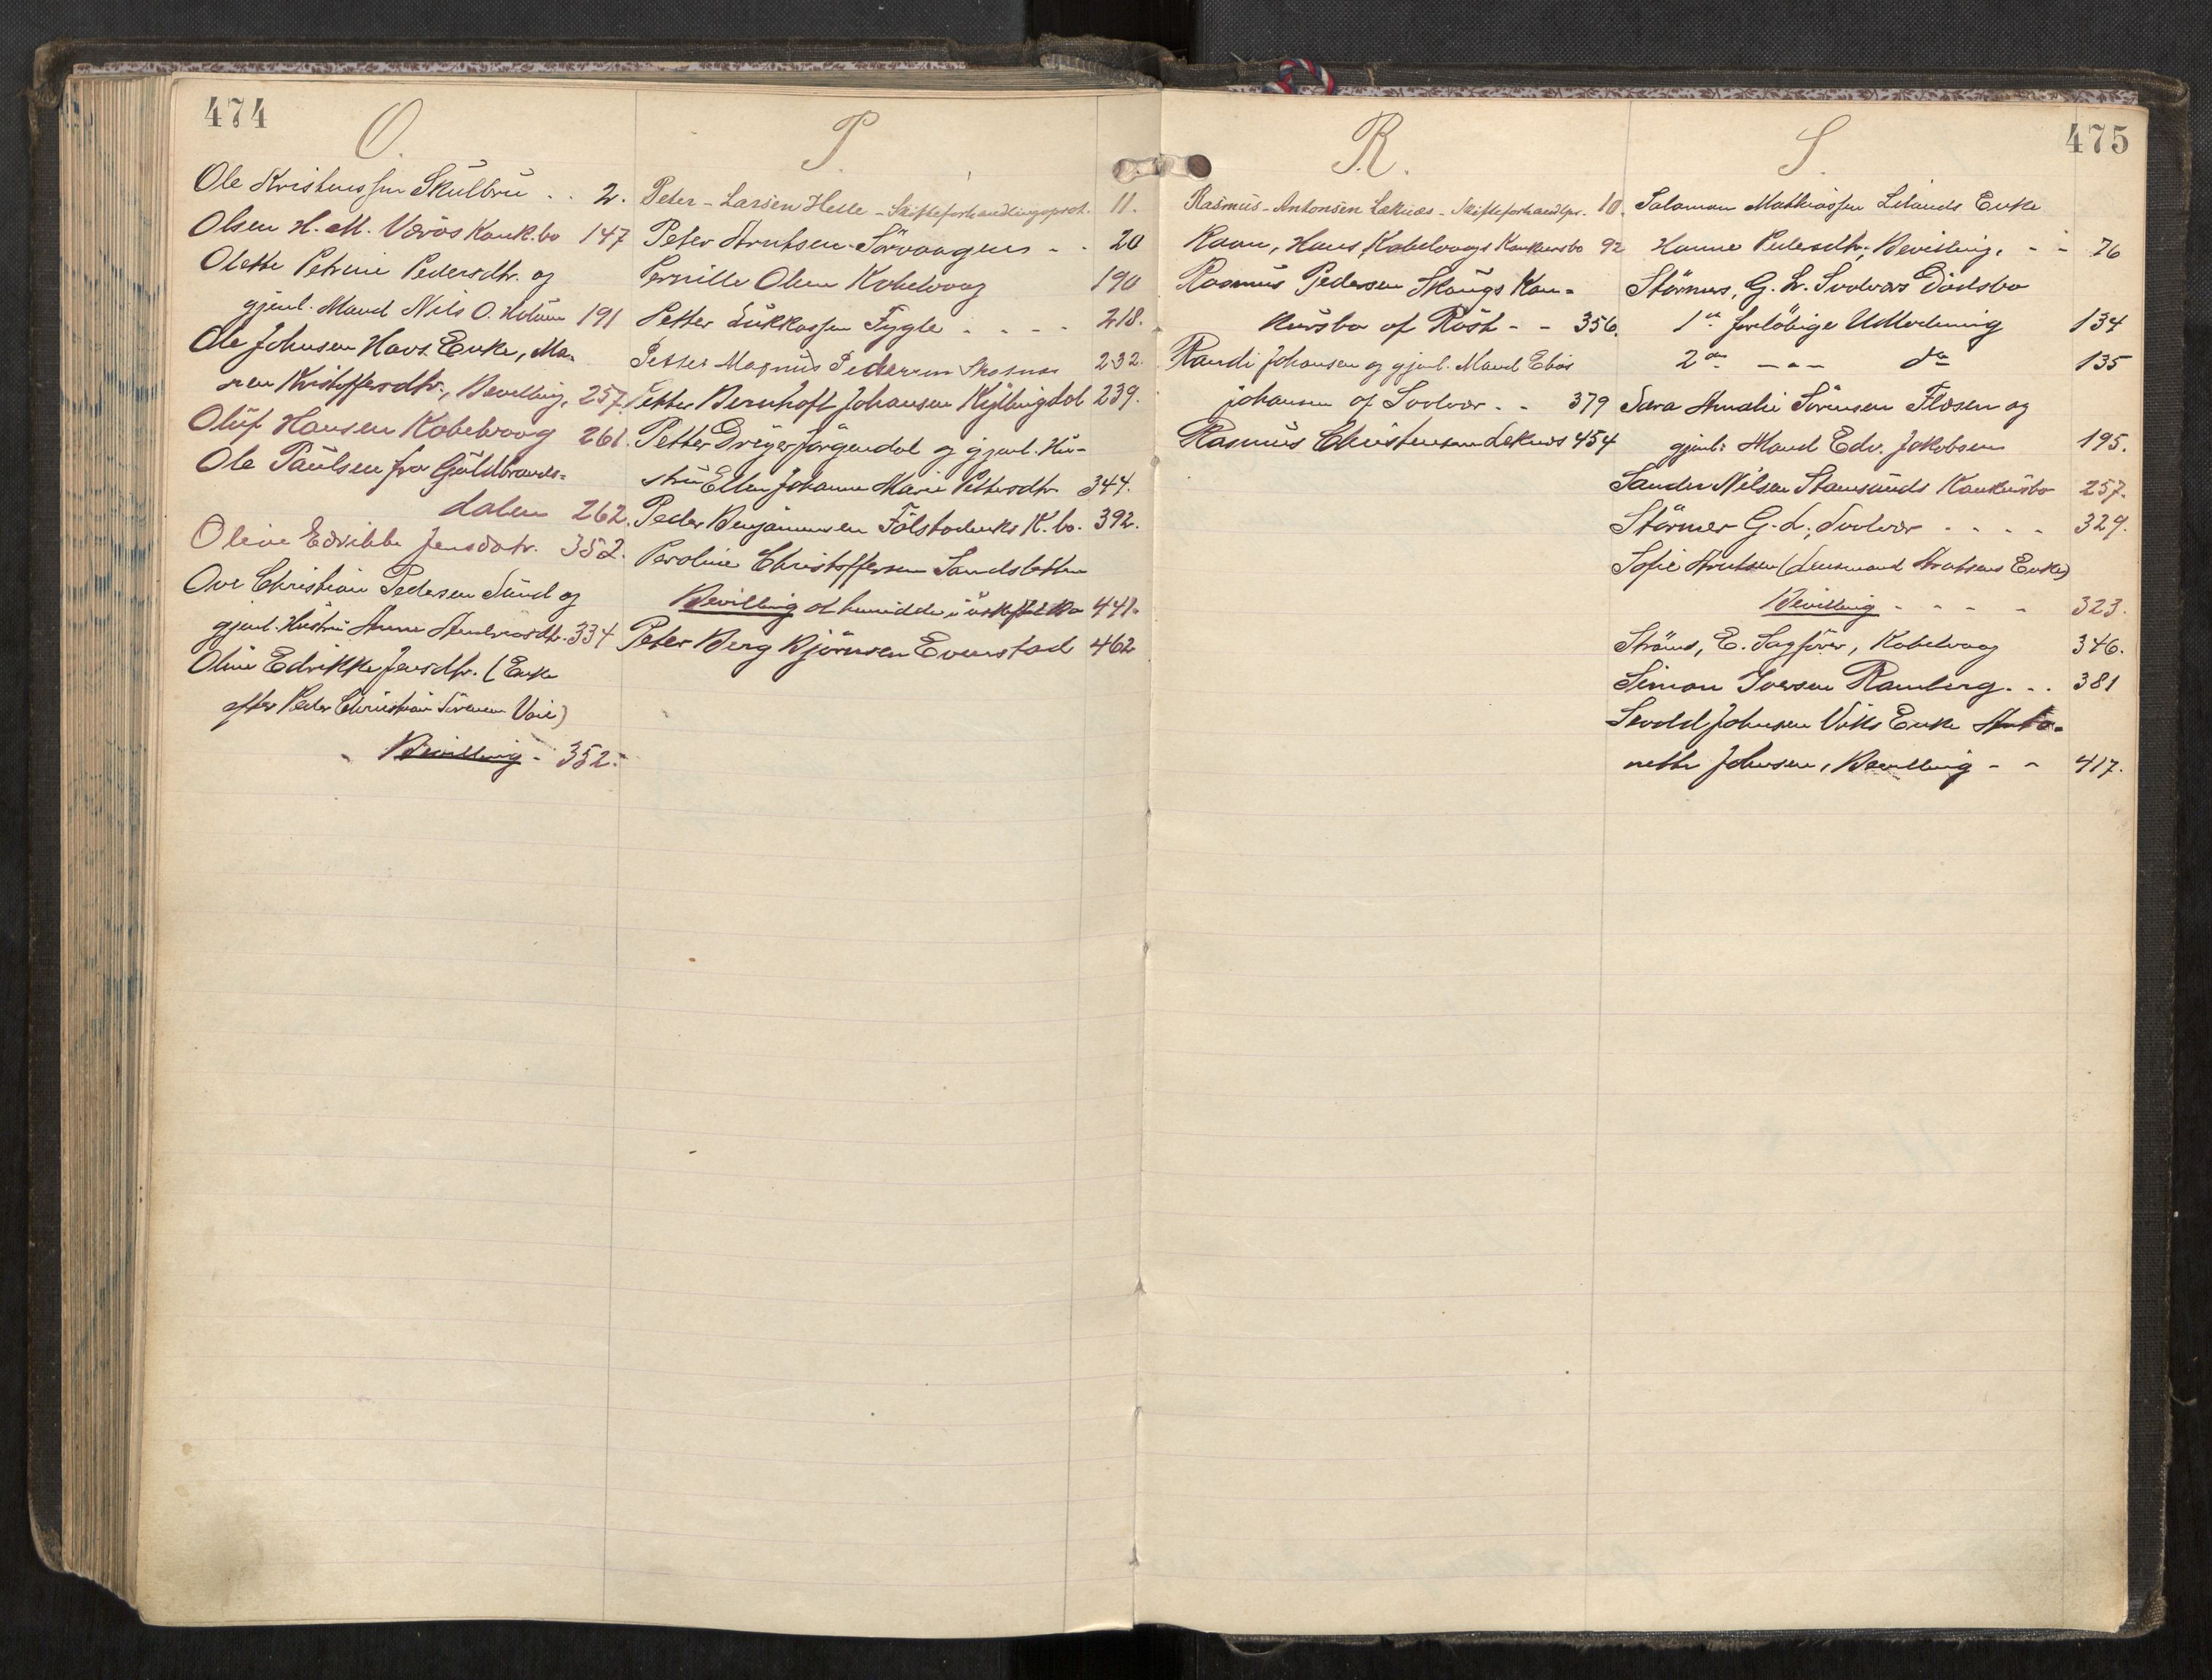 474
O.
Ole Kristenssen Skulbru . . 2.
Olsen H. M. Værøs Konk.bo 147
Olette Petrine Pedersdtr. og
gjenl. Mand Nils O. 191
Ole Johnsen Havs Enke, Ma-
ren Kristoffersdtr., Bevilling, 257.
Oluf Hansen Kabelvaag 261.
Ole Paulsen fra Guldbrands-
dalen 262.
Oline Edrikke Jensdatr. 352.
Ove Christian Pedersen Sund og
gjenl. Hustru Anne Andreasdtr. 334
Oline Edrikke Jensdtr. (Enke
efter Peder Christian Sörensen Voie)
Bevilling - 352.
P.
Peter - Larsen Helle - Skifteforhandlingsprot. 11.
Peter Arntsen Sörvaagens - . 20
Pernille Olsen Kabelvaag 190
Petter Lukkassen Fygle . . - - 218.
Petter Magnus Pedersen 232.
Petter Bernhoft Johansen Kyllingdal 239.
Petter Dreyer Jörgendal og gjenl. Hu-
stru Ellen Johanne Marie Pettersdtr. 344.
Peder Benjaminsen Fölstadens K. bo. 392.
Peroline Christoffersen Sandsletten
Bevilling at hensidde i uskiftet Bo 441.
Peter Berg Bjørnsen Evenstad 462
R.
Rasmus - Antonsen Leknes - Skifteforhandlpr. 10.
Raan, Hans, Kabelvaags Konkursbo 92
Rasmus Pedersen Skaugs Kon-
kursbo af Röst - - 356.
Randi Johansen og gjenl. Mand Ebias
johansen af Svolvær . - 379
Rasmus Christensen Leknes 454
475
S.
Salamon Mathiassen Lilands Enke
Hanne Pedersdtr., Bevilling. - - 76
Störmer, G. L. Svolvær Dödsbo
1ste forlöbige Utlodning 134
2den - - - do 135
Sara Amalie Sörensen Flæsen og
gjenl. Mand Edv. Jakobsen 195.
Sander Nilsen Stamsunds Konkursbo 257.
Störmer G. L., Svolvær . . . . 329.
Sofie Arntsen (Lensmand Arntsens Enke)
Bevilling - - - - 323.
Ströms, E. Sagförer, Kabelvaag 346.
Simon Iversen Ramberg. . . 381
Sevald Johnsen Viks Enke Anto-
nette Johnsen, Bevilling - - 417.